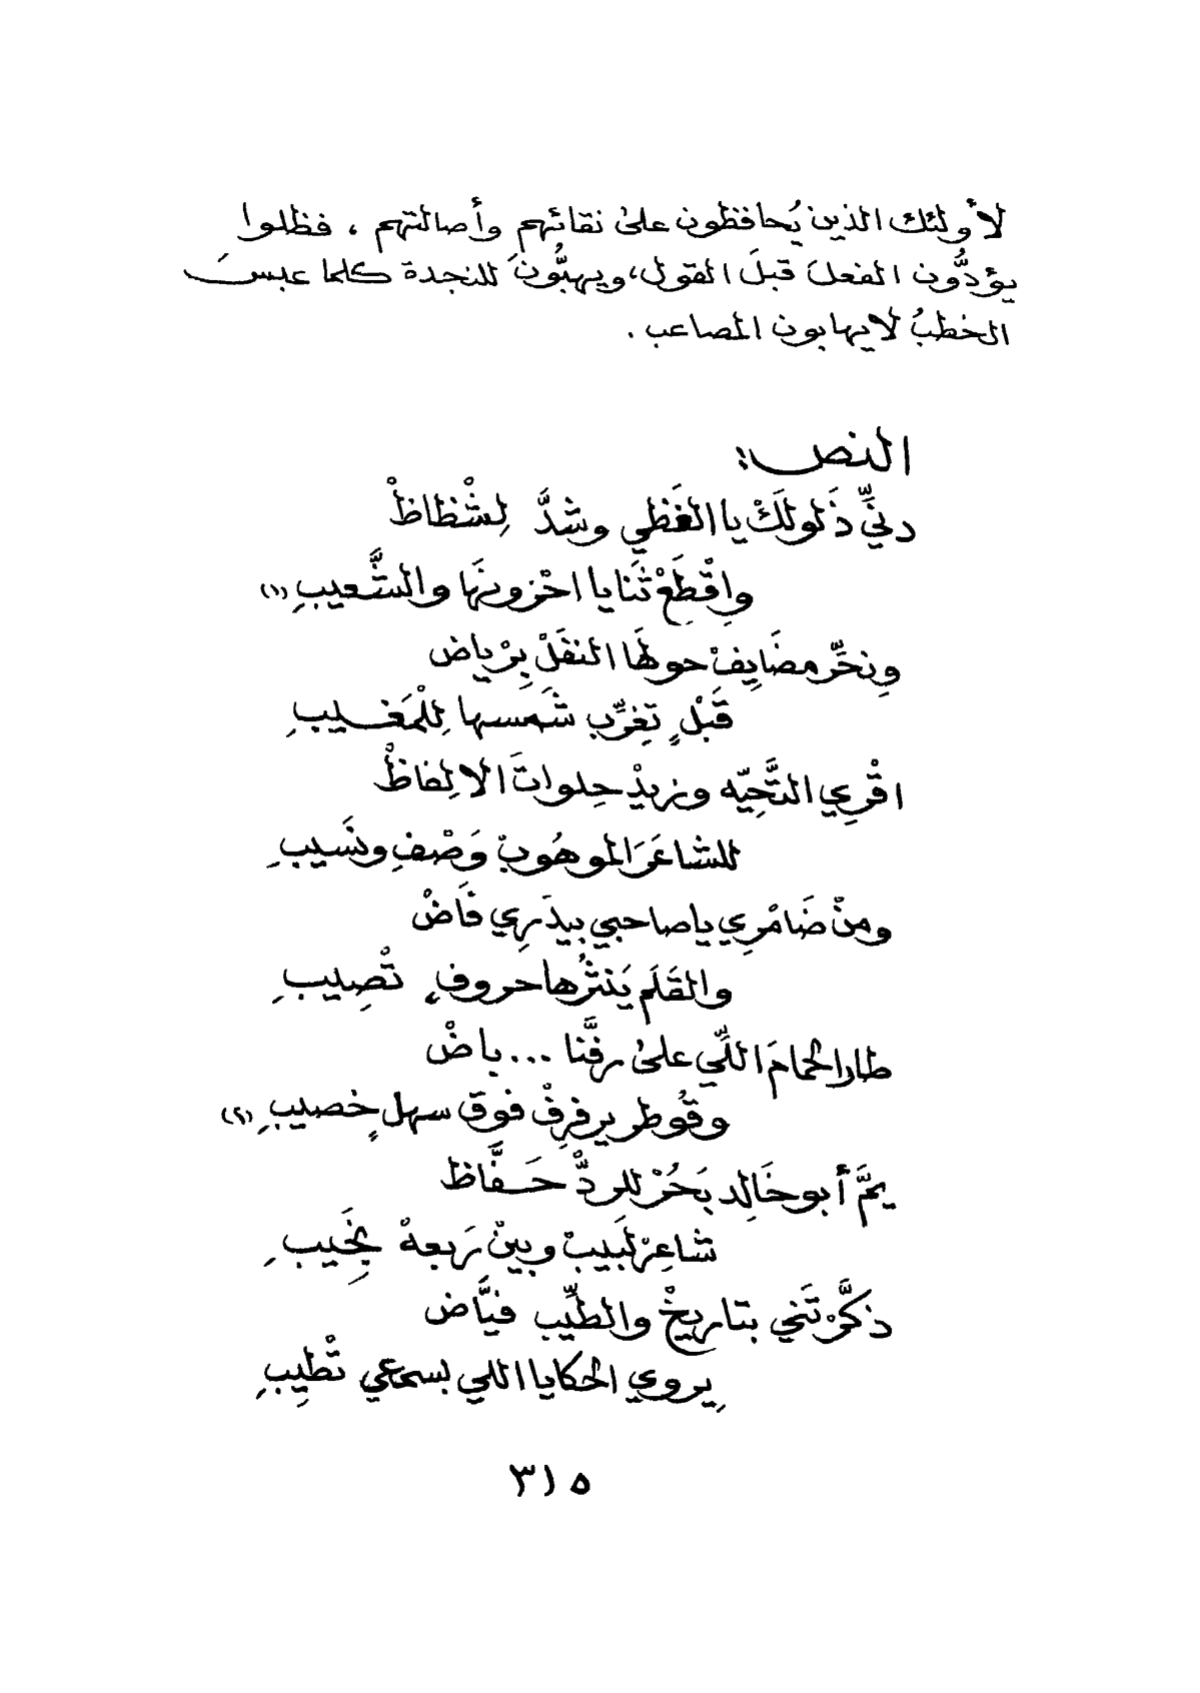 لأولئك الذين يُحافظون على نقائهم وأصالتهم ، فظلوا
يؤدُّون الفعلَ قبلَ القول، ويهبُّونَ للنجدة كلما عبسَ
الخطبُ لا يهابون المصاعب .
النص:
دنِّي ذَلولَكْ يا الغَظي وشدَّ لِشْظاظْ
واِقْطَعْ ثنَايا احْزونهَا والشَّعيبِ (١)
ونِحَرّ مضَايِفْ حولهَا النفَلْ بِرْياض
قَبْلٍ تِغرِّب شَمَسها لِلْمَغيبِ
اقْرِي التَّحِيّه وزيدْ حِلواتَ الالِفاظْ
للشاعَرَ الموهُوبْ وَصْفِ ونَسَيبِ
ومِنْ ضَامْرِي يا صاحبي بيدَرِي فَاضْ
والقَلَم يَنثُرها حروفٍ تْصِيبِ
طار الحمامَ اللِّي على رفَّنا ... باضْ
وقُوطر يرفرِفْ فوق سهلٍ خصيبِ (٢)
يمَّ أبو خَالِد بَحُرْ للردّْ حَفَّاظ
شاعِرْ لَبَيبْ وبينْ رَبعهْ نِجَيبِ
ذكَّرْتَني بتاريخْ والطيِّب فيَّاض
يِروي الحكايا اللي بسمعي تْطِيبِ
٣١٥